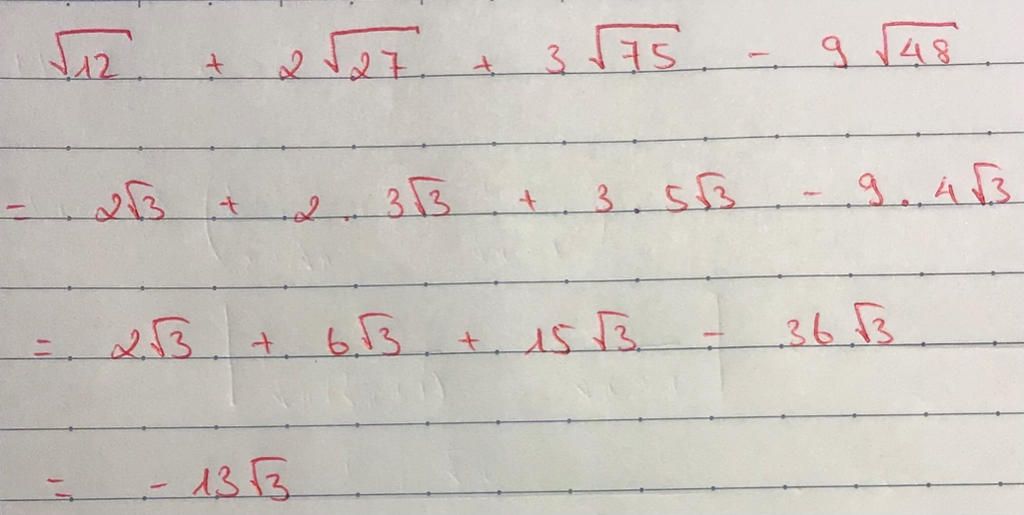 √12 + 2√27 + 3√75 - 9√48
= 2√3 + 2 . 3√3 + 3 . 5√3 - 9 . 4√3
= 2√3 + 6√3 + 15√3 - 36√3
= - 13√3